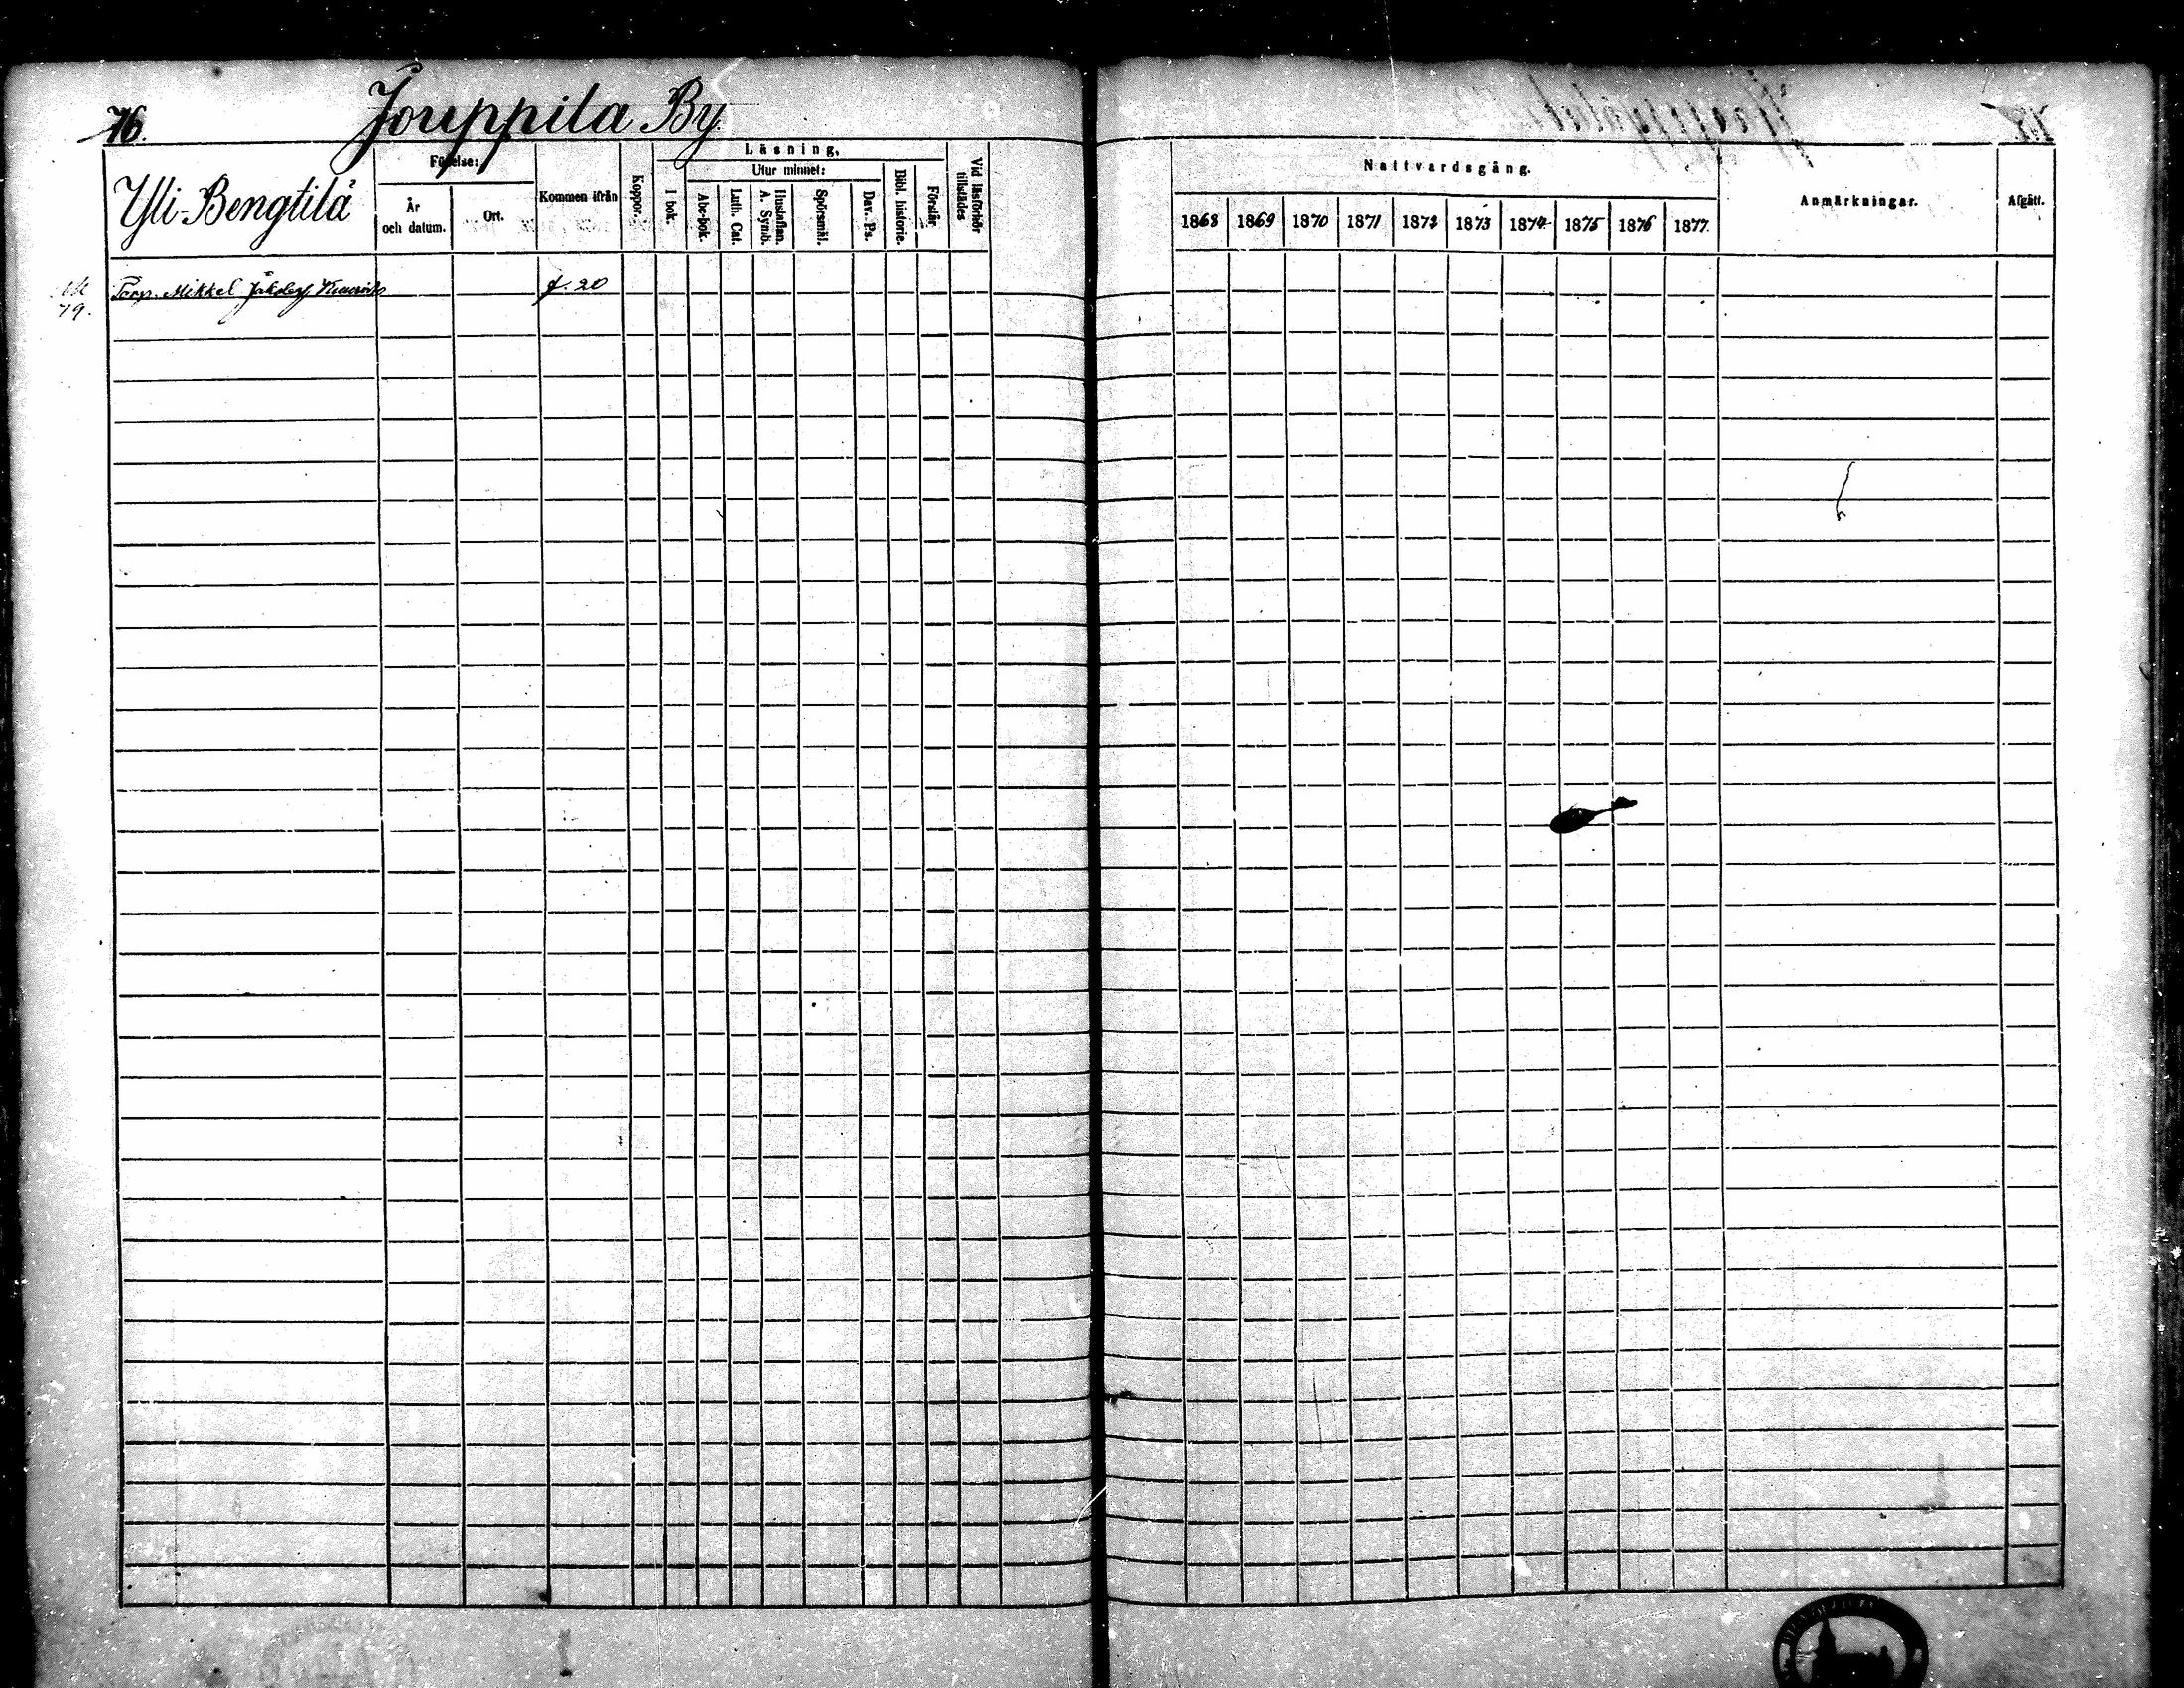 76.
Jouppila By
Yli-Bengtilä
Födelse:
År och datum.
Ort.
Kommen ifrån
Koppor.
Läsning.
I bok.
Utur minnet:
Abc-bok.
Luth. Cat.
A. Symb.
Hustaflan.
Spörsmål.
Dav. Ps.
Bibl. historie.
Förstår.
Vid läsförhör tillstädes
Nattvardsgång.
1868 1869 1870 1871 1872 1873 1874 1875 1876 1877.
Anmärkningar.
Afgått.
79.
Torp. Mikkel f. 20